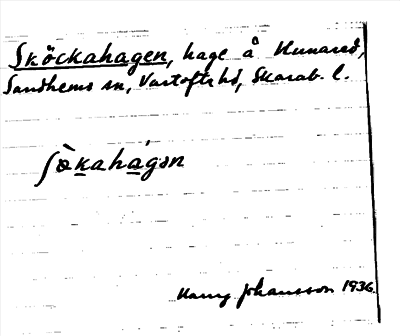 Sköckahagen, hage å Hunared,
Sandhems sn, Vartofta hd, Skarab. l.
ʃö̀kahágən
Harry Johansson 1936.